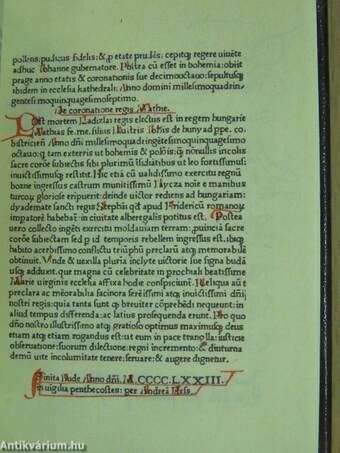 pollens: pudicus fidelis: & ꝑ etate prudēs: cepitqꝫ regere viuēte
adhuc Iohanne gubernatore. Postea cū esset in bohemia: obiit
prage anno etatis & coronationis sue decimooctauo: sepultusqꝫ
ibidem in ecclesia kathedrali. Anno domini millesimoquadrin
gentesimoquinquagesimoseptimo.
De coronatione regis Mathie.
Post mortem Ladizlai regis electus est in regem hungarie
Mathias se me. filius Illustris Iohīs de huny ad ppe.
obstricteri Anno dñi millesimoquadringētesimoquinquagesimo
octauo: qꝫ tam exterris ut bohemis & polōis: qꝫ nonullis incolis
sacre corōe subiectis sibi plurimū īsidiātibus ut leo fortissimus:
inuictissimusqꝫ restitit. Hic etiā cū ualidissimo exercitu regnū
bozne ingressus castrum munitissimū Iaycza noīe e manibus
turcoꝝ gloriose eripuerat: deinde uictor rediens ad hungariam:
dyademate sancti regis Stephāi qd apud Fridericū romanoꝝ
impatorē habebat: in ciuitate albergalis potitus est. Postea
uero collecto ingēti exercitu moldauiam terram: puincia sacre
corōe subiectam sed p id temporis rebellem ingressus est. ibiqꝫ
habito acerbissimo conflictu triūphū preclarū atqꝫ memorabilē
optinuit. Vnde & uexilla pluria inclyte uictorie sue signa budā
usqꝫ adduxit. que magna cū celebritate in prochiali beatissime
Marie virginis ecclesia affixa hodie conspiciunt. Reliqua aut
preclara ac memorabilia facinora serenissimi atqꝫ inuictissimi dñi,
nostri regis: quia tanta sunt qꝫ breuiter cōprehēdi nequeunt: in
aliud tempus differenda: ac latius prosequenda erunt. Pro quo
dño nostro illustrissimo atqꝫ gratioso optimus maximusqꝫ deus
etiam atqꝫ etiam rogandus est: ut eum in pace tranquilla: iusticie
obseruatione: suorum dilectione: regni incremento: & diuturna
demū uite incolumitate tenere: seruare: & augere dignetur.
Finita Bude Anno dñi. M.CCCC.LXXIII.
in uigilia penthecostes: per Andreā Hess.
Antikvárium.hu